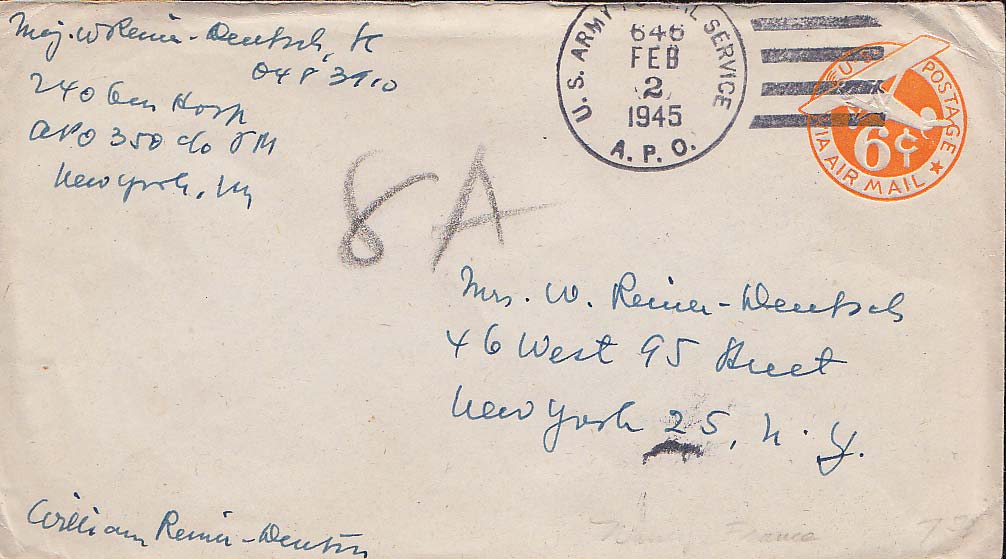 Maj. W Reiner-Deutsch,
0483910
240 Gen Hosp
APO 350 c/o PM
New York, NY
U.S. ARMY POSTAL SERVICE
646
FEB
2
1945
A.P.O.
U.S. POSTAGE
6¢
VIA AIR MAIL
8A
Mrs. W. Reiner-Deutsch
46 West 95 Street
New York 25, N.Y.
William Reiner-Deutsch
France 7.50